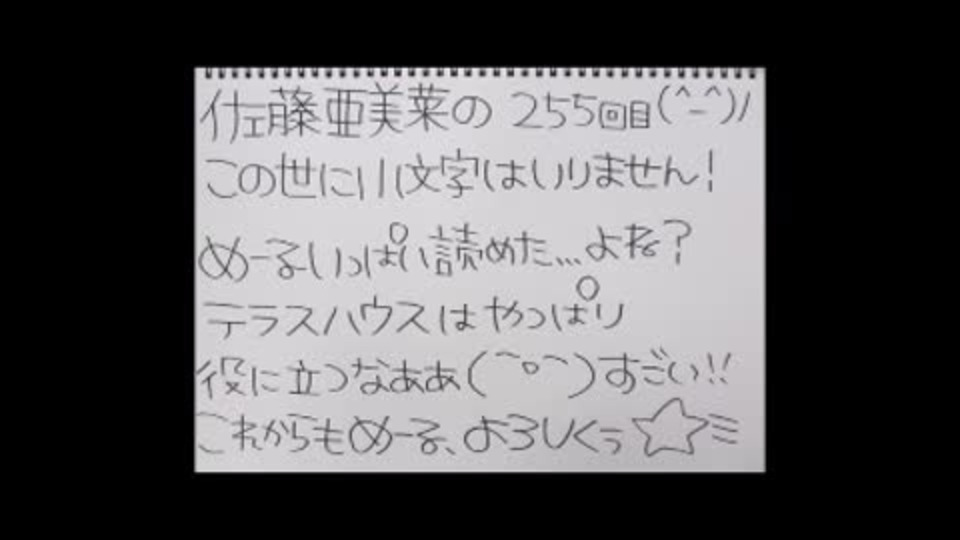 佐藤亜美菜の255回目(^-^)ﾉ
この世に小文字はいりません!
めーるいっぱい読めた...よね?
テラスハウスはやっぱり
役に立つなああ(⌒o⌒)すごい!!
これからもめーる、よろしくぅ☆彡